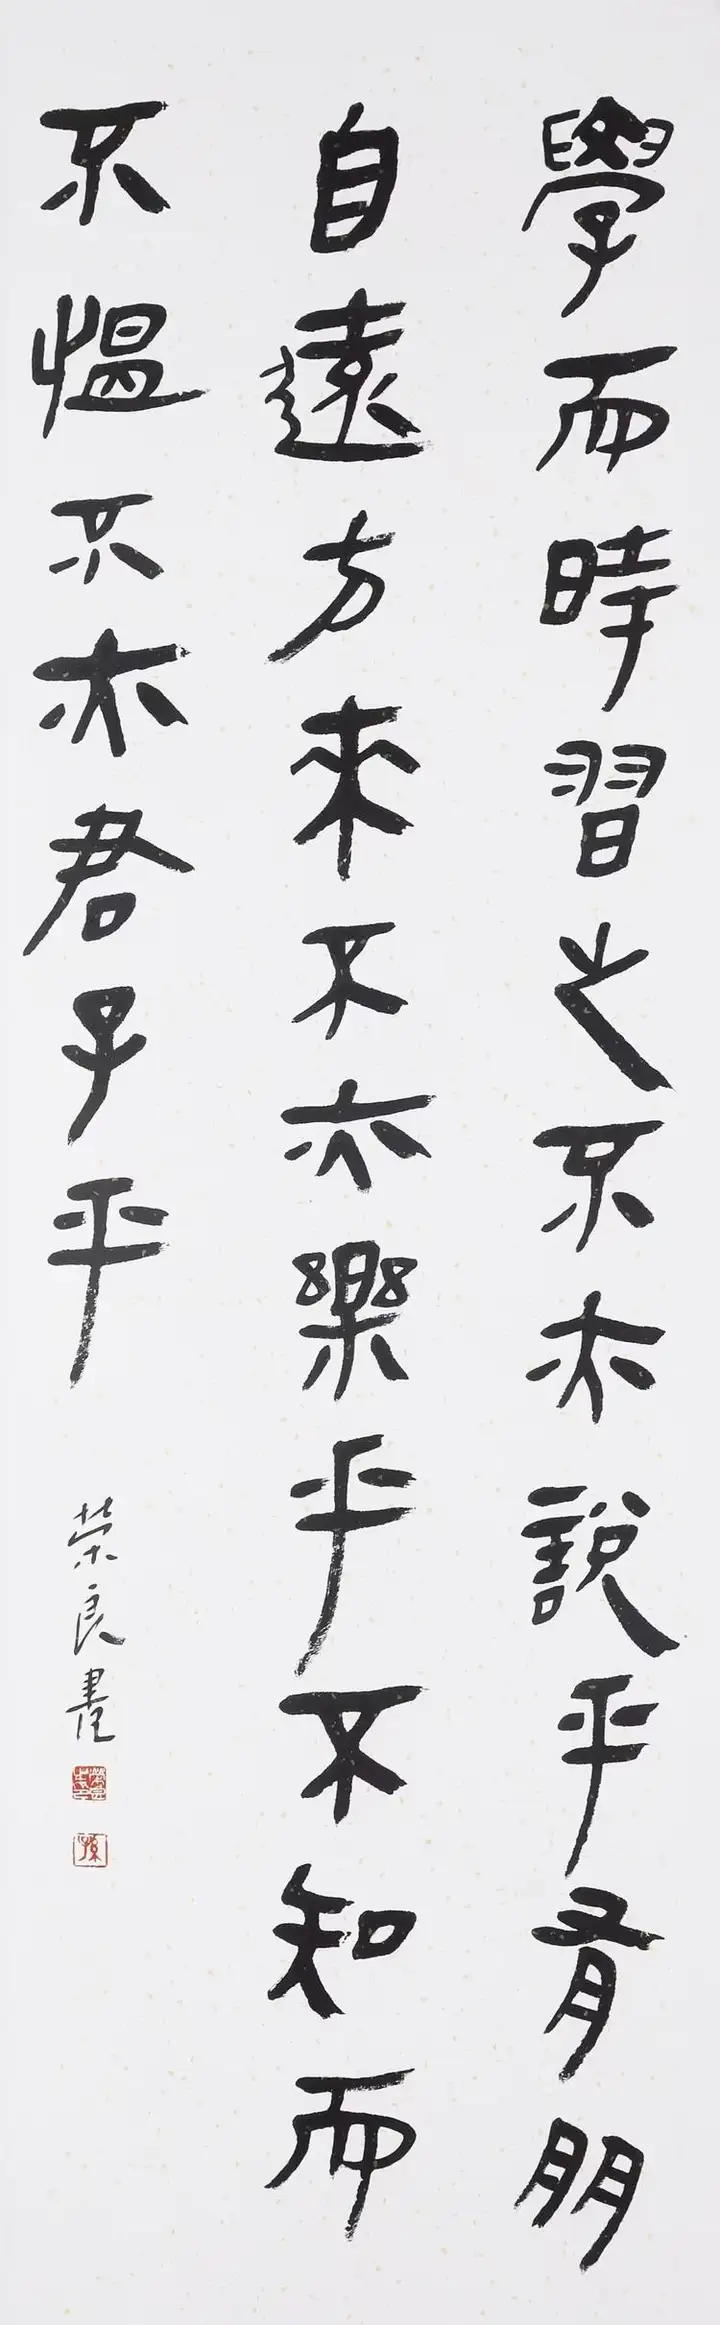 學而時習之不亦說乎有朋
自遠方來不亦樂乎不知而
不愠不亦君子乎
荣良書
孫